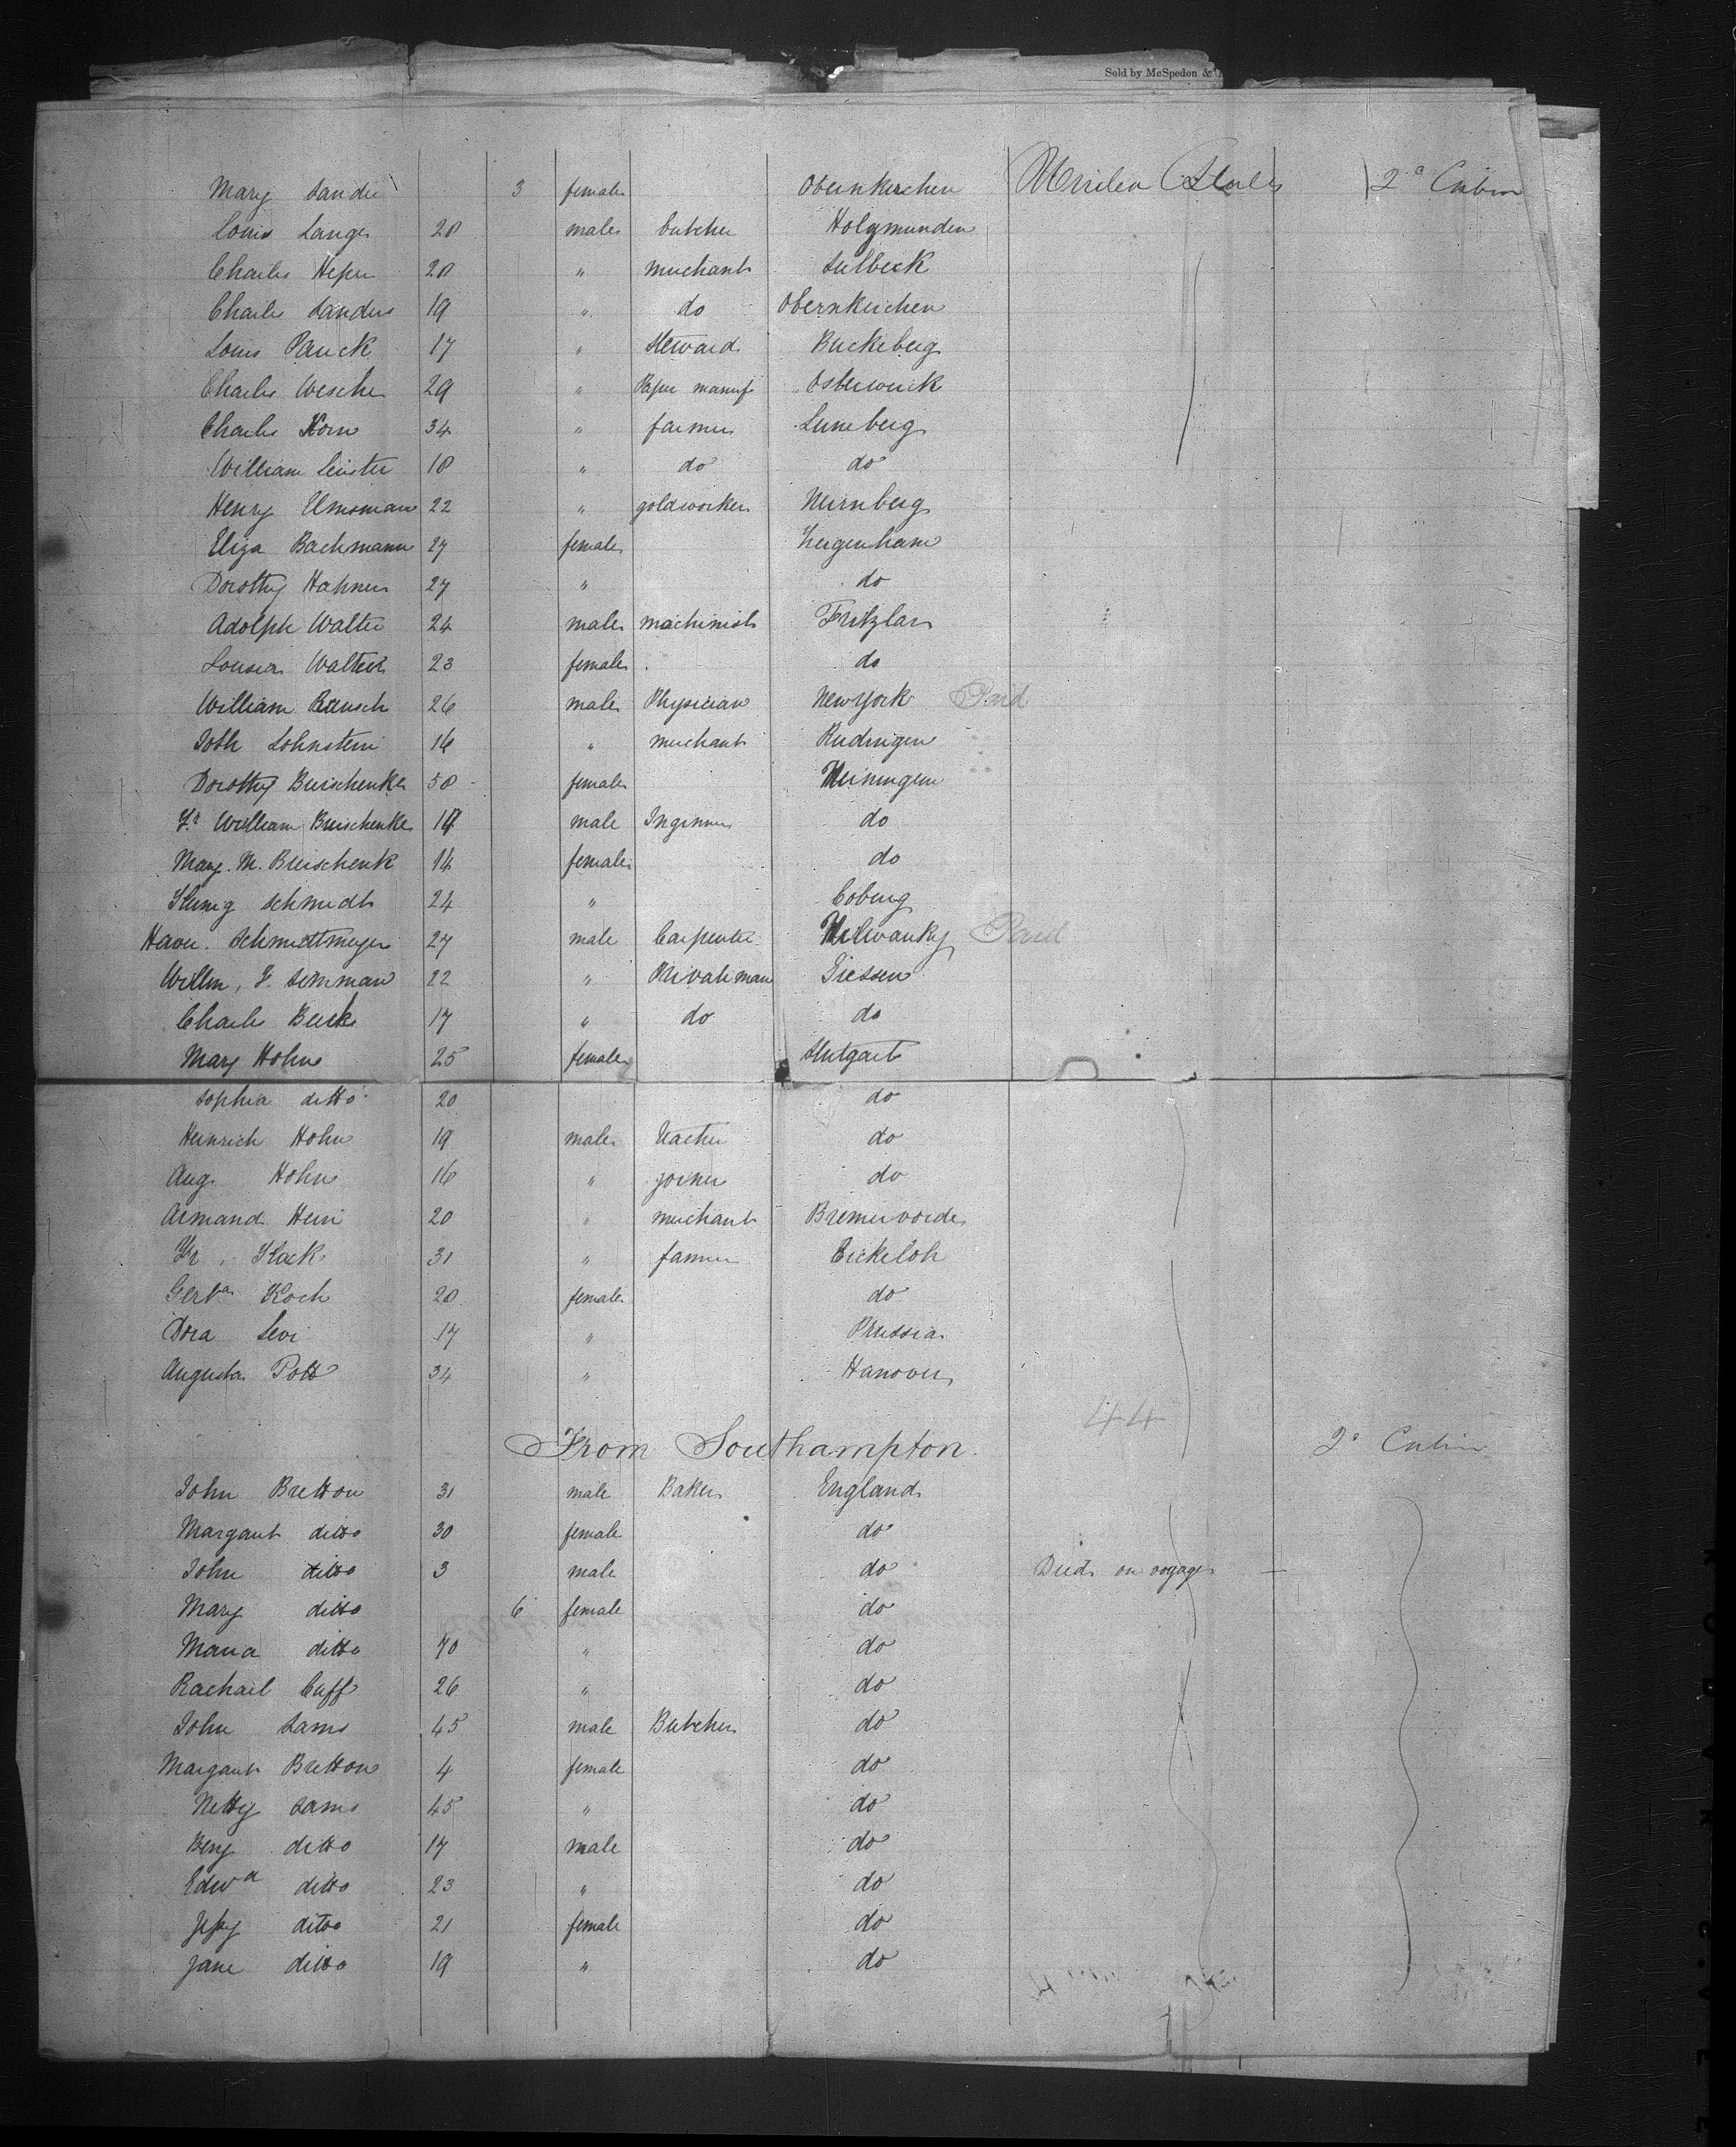 Sold by McSpedon &
Mary Sander 3 female Obernkirchen United States 2d Cabin
Louis Lange 20 male butcher Holzmunden
Charles Heper 20 " merchant Sulbeck
Charles Sanders 19 " do Obernkirchen
Louis Panck 17 " Steward Buckeberg
Charles Wesche 29 " Paper manuf Osterwick
Charles Horn 34 " farmer Luneberg
William Leister 18 " do do
Henry Elmsman 22 " goldworker Nurnberg
Eliza Bachmann 27 female
Dorothy Hahner 27 " do
Adolph Walter 24 male machinist Fritzlar
Lousia Walter 23 female do
William Rausch 26 male Physician New York Paid
Joth Lohnstein 16 " merchant
Dorothy Buischenk 50 female Meiningen
Fr William Buischenk male Inginner do
Mary M. Buischenk 14 female do
Schmidt 24 " Coburg
Schmidtmeyer 27 male Carpenter Milwauky Paid
Willm, F. 22 " Privatman Giessen
Charles Buck 17 " do do
Mary Hohn 25 female Stutgart
Sophia ditto 20 do
Heinrich Hohn 19 male teacher do
Aug. Hohn 16 " joiner do
Armand Hein 20 " merchant Bremervorde
Fr. Koch 31 " farmer Eickeloh
Gerta Koch 20 female do
Dora Levi 17 " Prussia
Augusta Pott 34 " Hanover
44
From Southampton 2d Cabin
John Bretton 31 male Baker England
Margaret ditto 30 female do
John ditto 3 male do Died on voyage
Mary ditto 6 female do
Maria ditto 70 " do
Rachail Cuff 26 " do
John Sams 45 male Butcher do
Margaret Bretton 4 female do
Netty Sams 45 " do
Benj ditto 17 male do
Edwd ditto 23 " do
Jessy ditto 21 female do
Jane ditto 19 " do